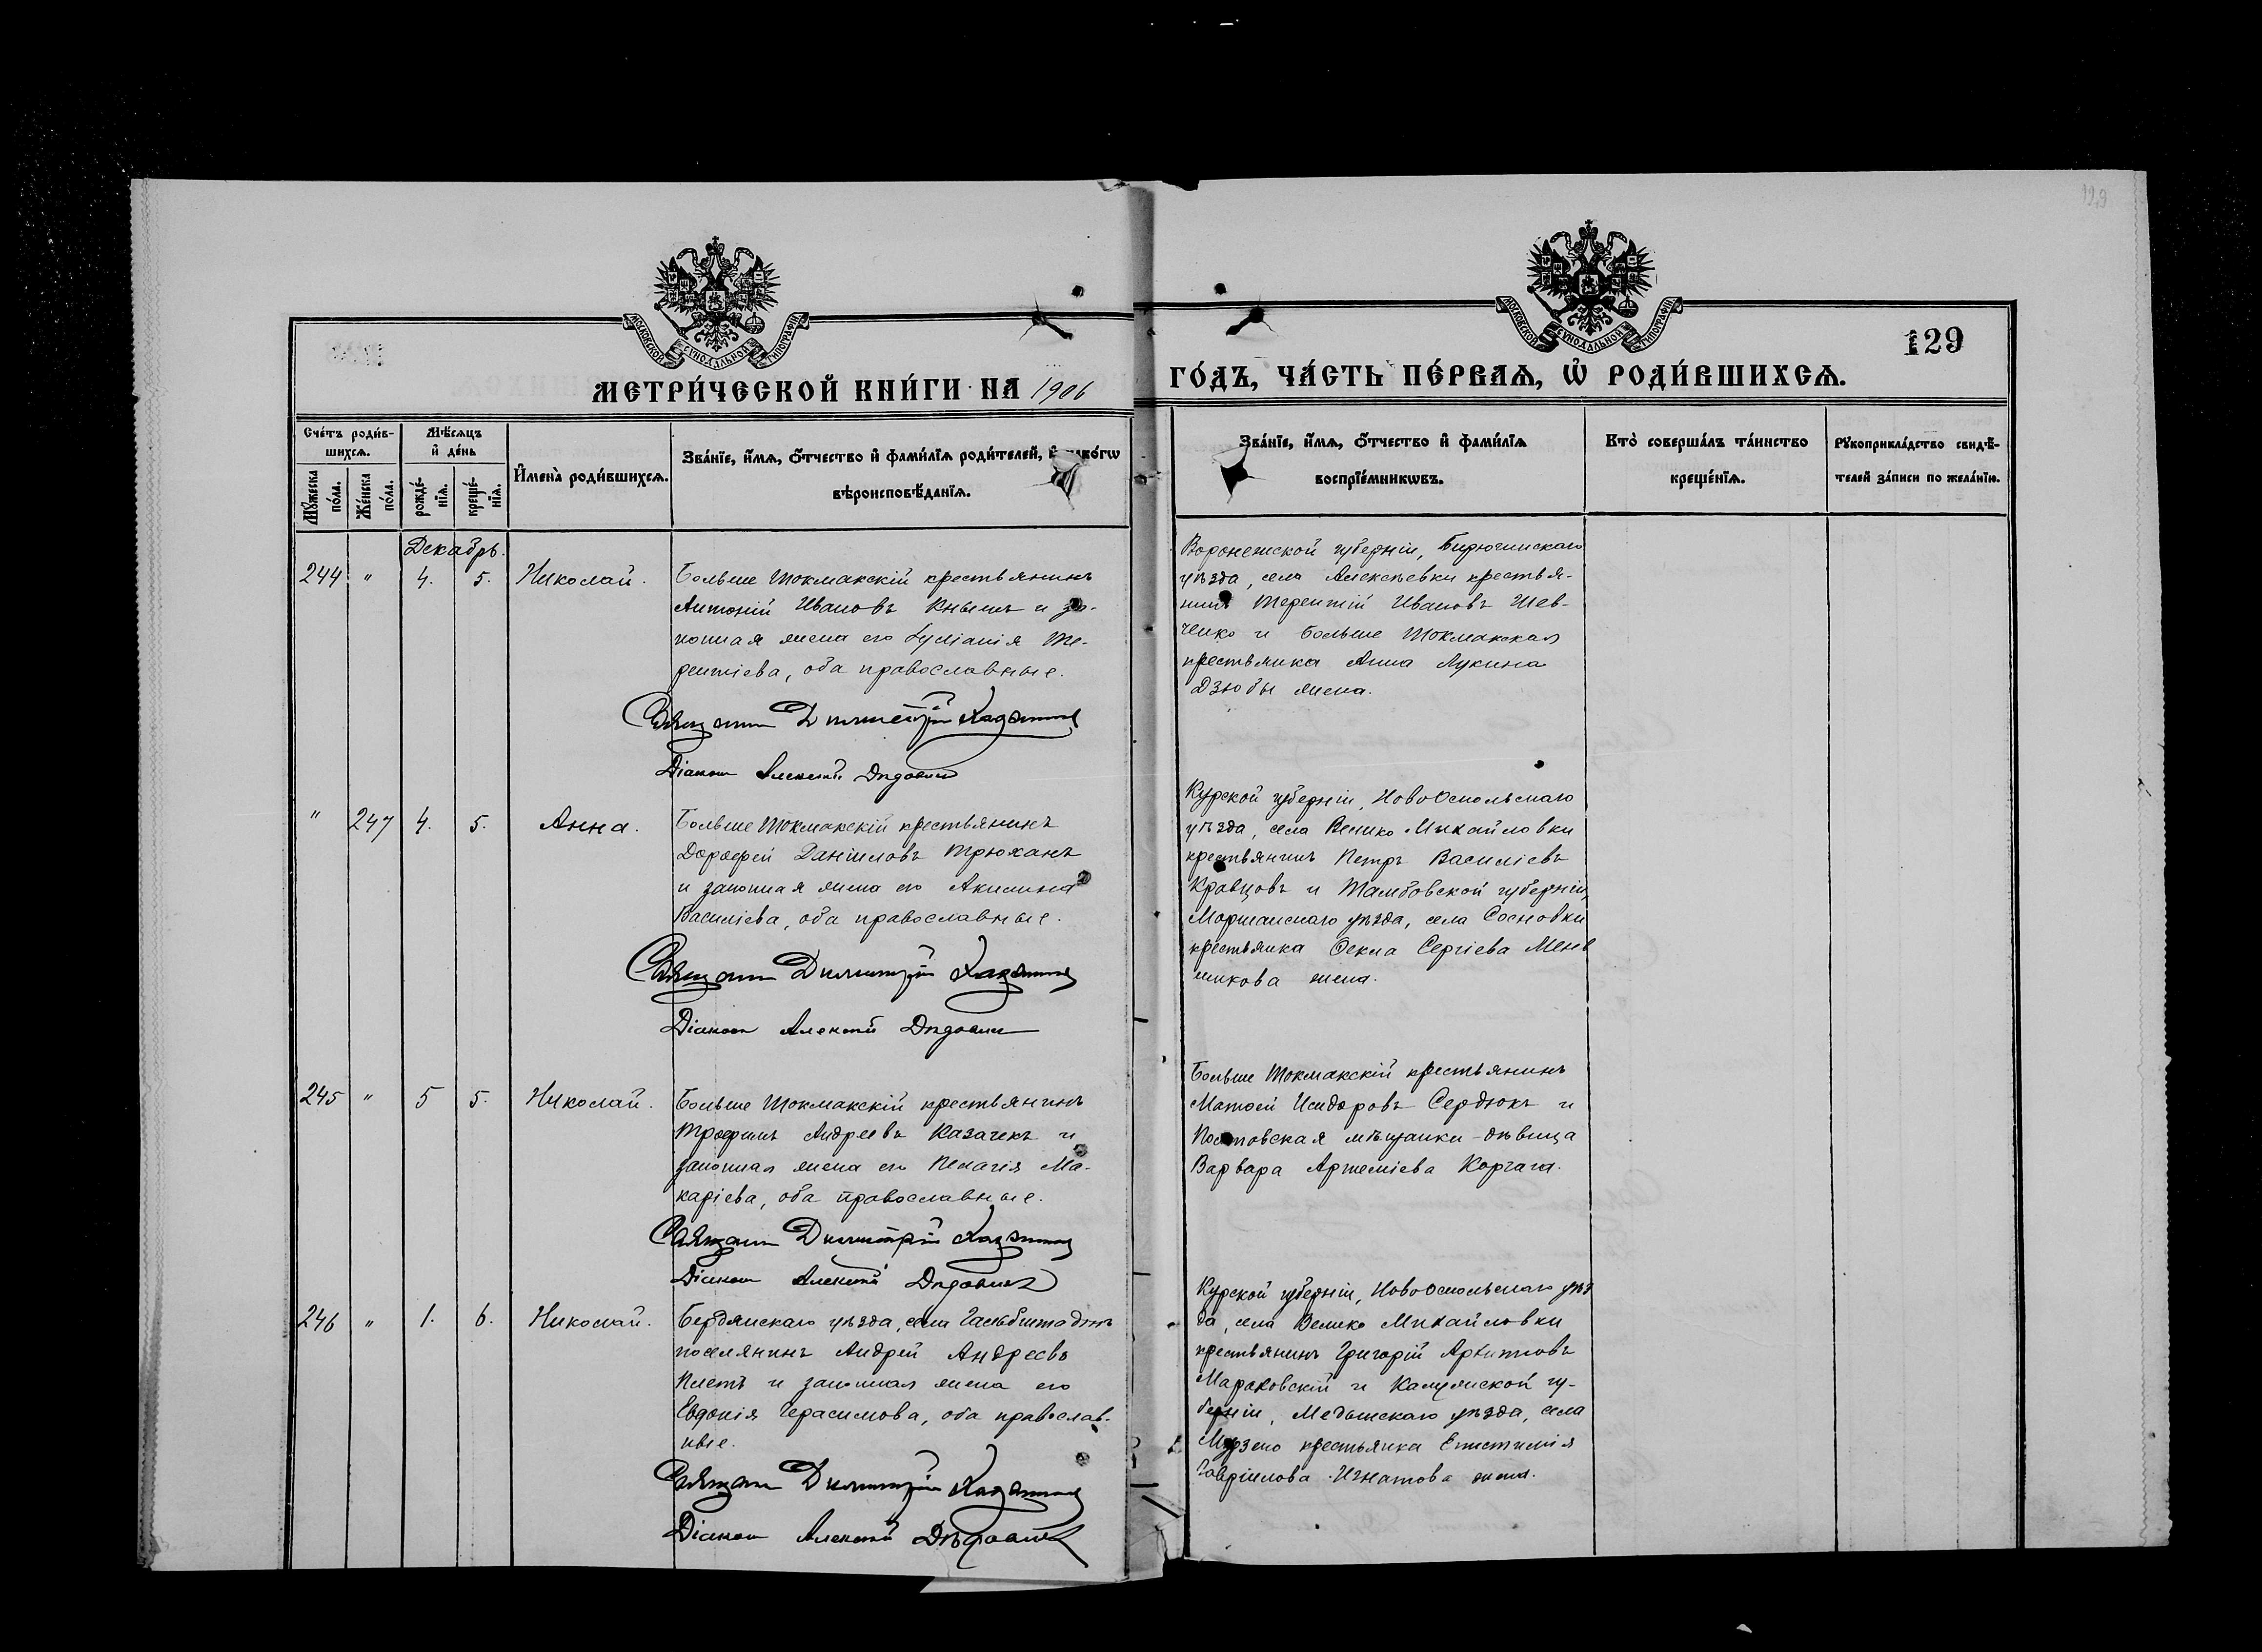 129
МОСКОВСКОЙ СѴНОДАЛЬНОЙ ТИПОГРАФІИ
МОСКОВСКОЙ СѴНОДАЛЬНОЙ ТИПОГРАФІИ
129
МЕТРИ́ЧЕСКОЙ КНИ́ГИ НА 1906
ГО́ДЪ, ЧА́СТЬ ПЕ́РВАѦ, Ѡ҆ РОДИ́ВШИХСѦ.
Сче́тъ роди́в-
шихсѧ.
Мꙋ́жеска по́ла.
Же́нска по́ла.
Мѣ́сѧцъ
и҆ де́нь
рожде́-
нїѧ.
креще́-
нїѧ.
И҆мена̀ роди́вшихсѧ.
Зва́нїе, и҆́мѧ, ѻ҆́тчество и҆ фами́лїѧ роди́телей, и҆
вѣроисповѣ́данїѧ.
Зва́нїе, и҆́мѧ, ѻ҆́тчество и҆ фами́лїѧ
воспрїе́мникѡвъ.
Кто̀ соверша́лъ та́инство
креще́нїѧ.
Рꙋкоприкла́дство свидѣ́-
телей за́писи по жела́нїю.
Декабрь.
244 " 4. 5. Николай.
Больше Токмакскій крестьянинъ
Антоній Ивановъ Кнышъ и за-
конная жена его Іуліанія Те-
рентіева, оба православные.
Священ Димитрій
Діаконъ Алексій
Воронежской губерніи, Бирючинскаго
уѣзда, села Алексѣевки крестья-
нинъ Терентій Ивановъ Шев-
ченко и Больше Токмакская
крестьянка Анна Лукина
Дзюбы жена.
" 247 4. 5. Анна.
Больше Токмакскій крестьянинъ
Дорофей Даніиловъ Трюханъ
и законная жена его Акилина
Василіева, оба православные.
Священ Димитрій
Діаконъ Алексій
Курской губерніи, Новооскольскаго
уѣзда, села Велико Михайловки
крестьянинъ Петръ Василіевъ
Кравцовъ и Тамбовской губерніи,
Моршанскаго уѣзда, села Сосновки
крестьянка Ѳекла Сергіева
жена.
245 " 5 5. Николай.
Больше Токмакскій крестьянинъ
Трофимъ Андреевъ Казачекъ и
законная жена его Пелагія Ма-
каріева, оба православные.
Священ Димитрій
Діаконъ Алексій
Больше Токмакскій крестьянинъ
Матѳей Исидоровъ Сердюкъ и
Полтовская мѣщанка-дѣвица
Варвара Артеміева Коргага.
246 " 1. 6. Николай.
Бердянскаго уѣзда, села Гальбштадтъ
поселянинъ Андрей Андреевъ
Плетъ и законная жена его
Евдокія Герасимова, оба православ-
ные.
Священ Димитрій
Діаконъ Алексій
Курской губерніи, Новооскольскаго уѣз
да, села Велико Михайловки
крестьянинъ Григорій Архиповъ
Мараховскій и Калужской гу-
берніи, Медынскаго уѣзда, села
крестьянка Епистимія
Гавріилова Игнатова жена.